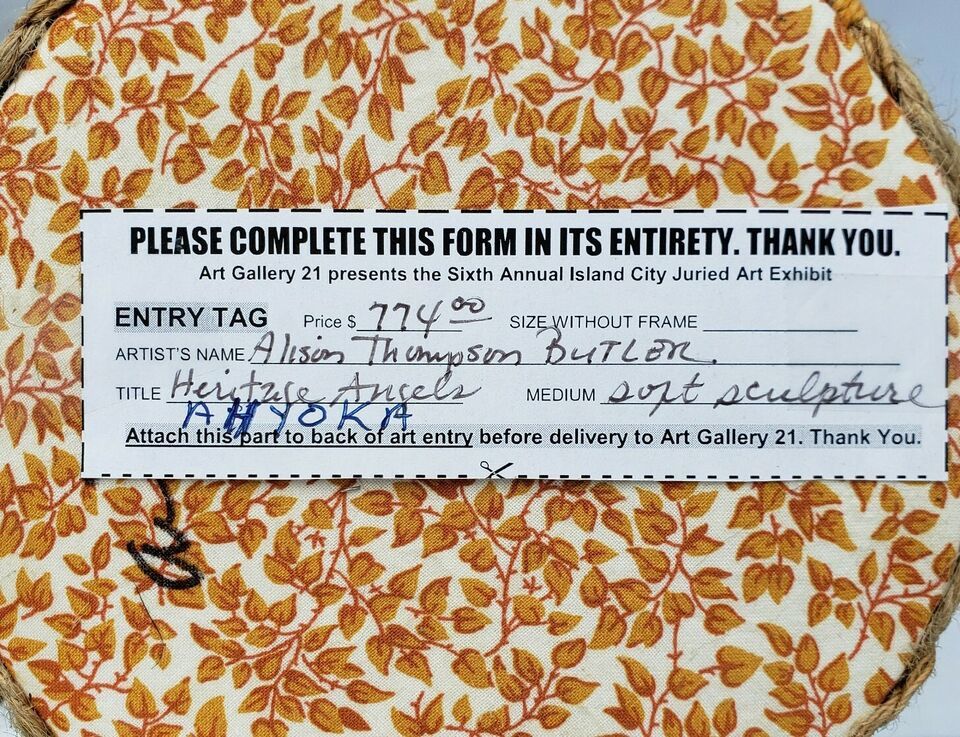 PLEASE COMPLETE THIS FORM IN ITS ENTIRETY. THANK YOU.
Art Gallery 21 presents the Sixth Annual Island City Juried Art Exhibit
ENTRY TAG Price $ 774.00 SIZE WITHOUT FRAME
ARTIST'S NAME Alison Thompson BUTLER.
TITLE Heritage Angels MEDIUM soft sculpture
AHYOKA
Attach this part to back of art entry before delivery to Art Gallery 21. Thank You.